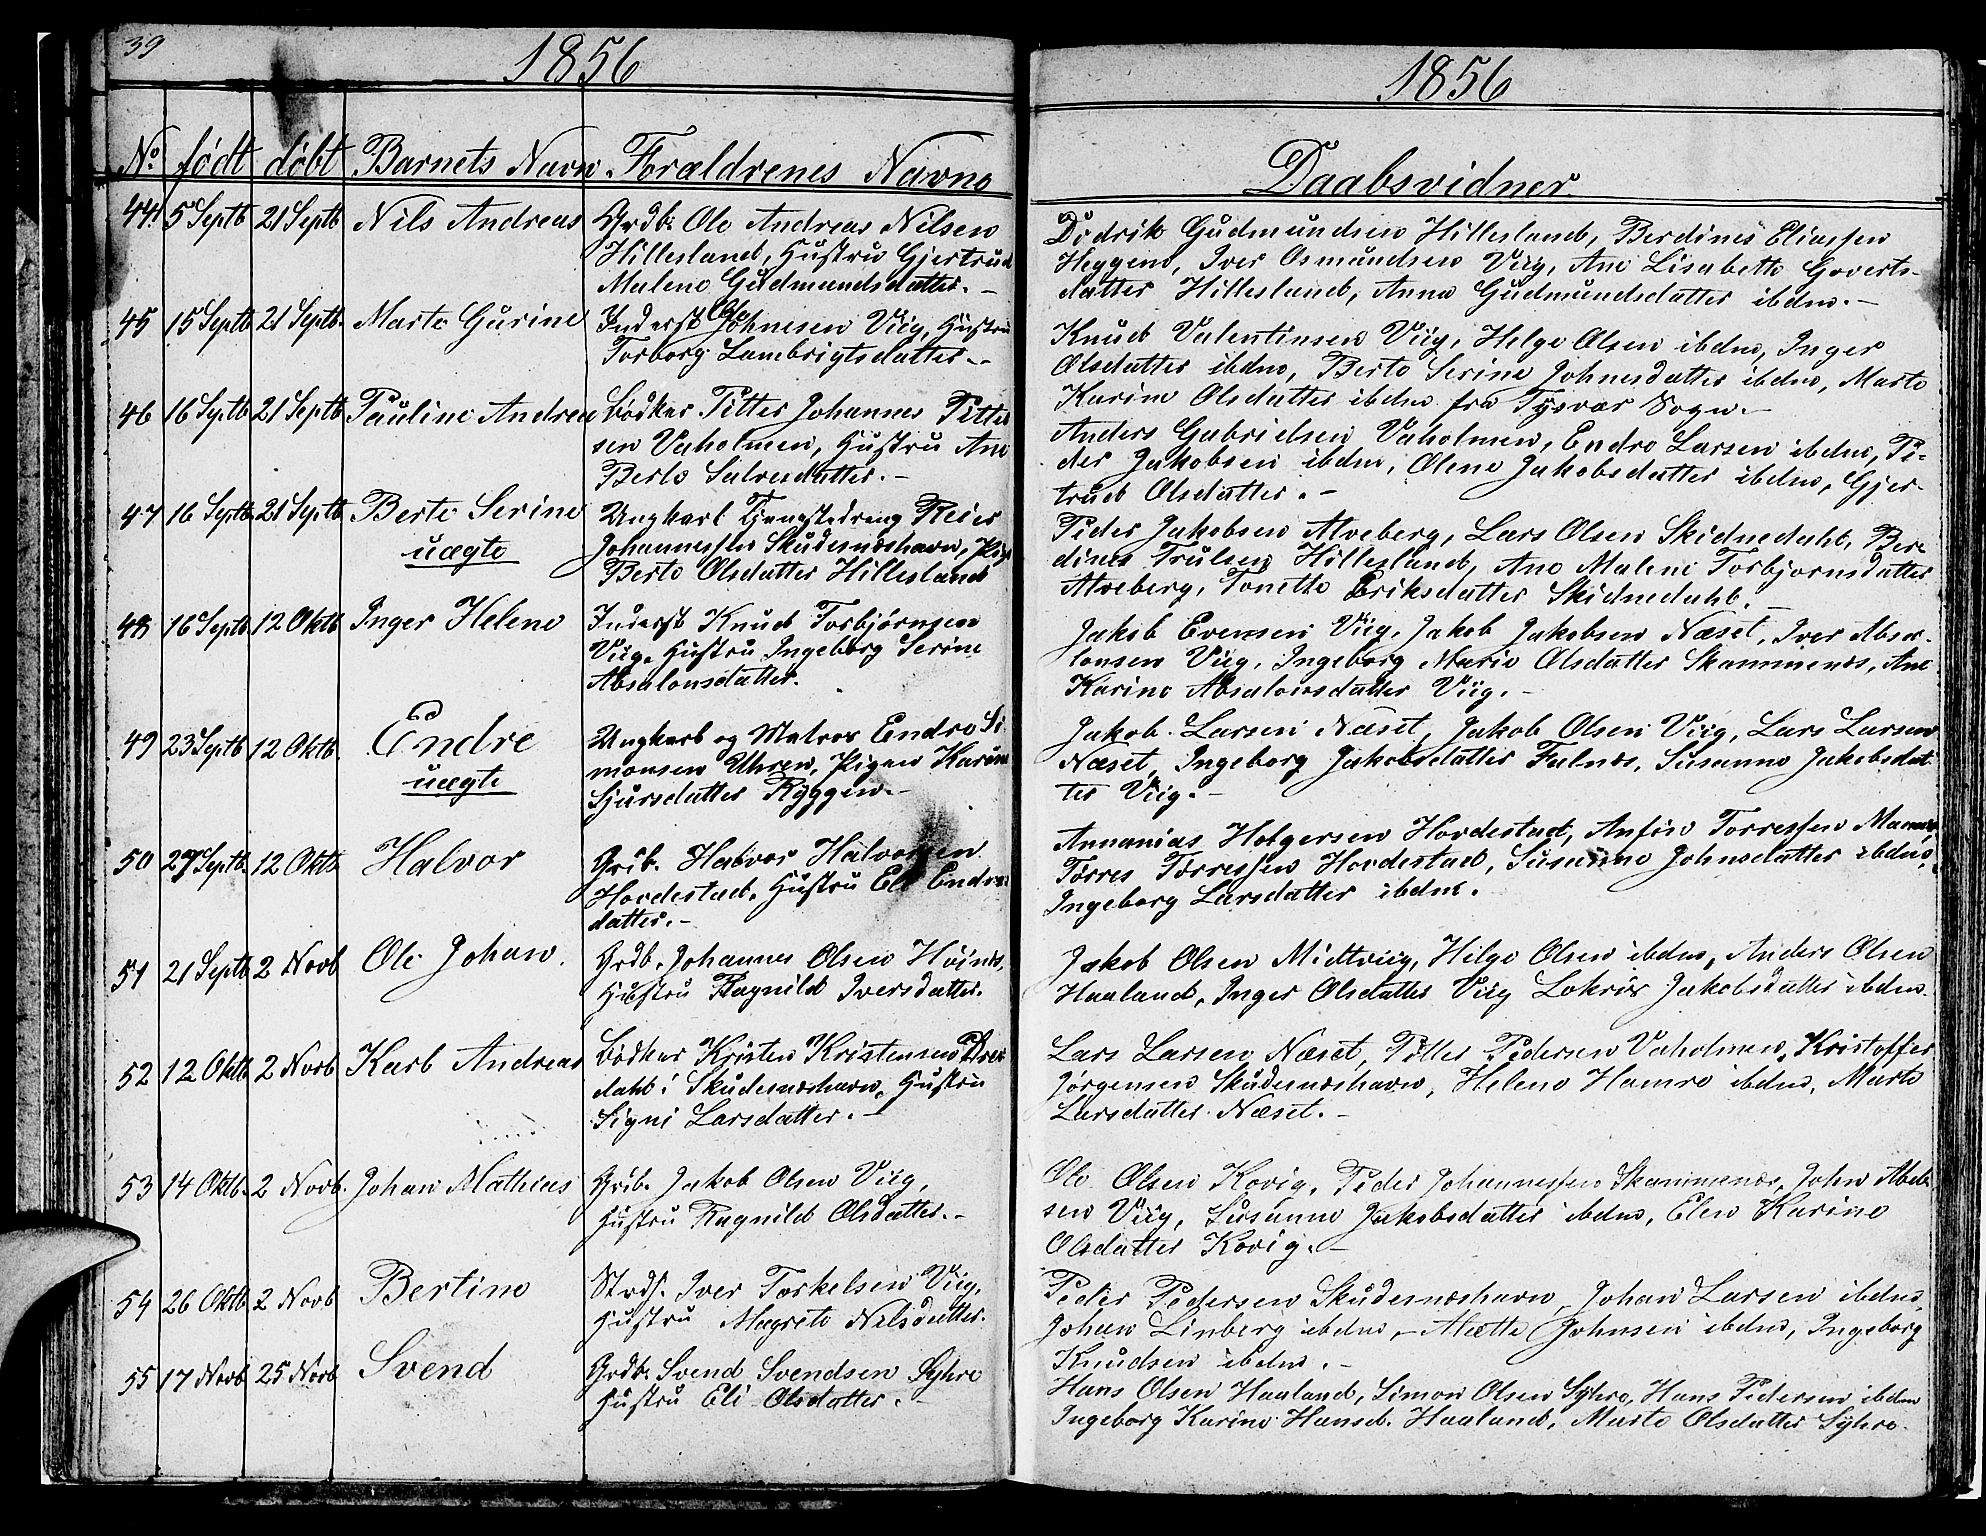 39
1856
No født døbt Barnets Navn. Forældrenes Navne
44. 5 Septb 21 Septb Nils Andreas Grdb. Ole Andreas Nilsen
Hillesland, Hustru Gjertrud
Malene Gudmundsdatter.-
45 15 Septb 21 Septb. Marte Gurine Inderst Ole Johnesen Viig, Hustru
Torborg Lambrigtsdatter.-
46 16 Septb 21 Septb Pauline Andrea Bødker Petter Johannes Petter
sen Vaholmen, Hustru Ane
Berte Salvesdatter.-
47 16 Septb 21 Septb Berte Serine Ungkarl Tjenestedreng Reier
uægte Johannessen Skudesnæshavn, Pige
Berte Olsdatter Hillesland
48 16 Septb 12 Oktb Inger Helene Inderst Knud Torbjørnsen
Viig. Hustru Ingeborg Serine
Absalonsdatter.
49 23 Septb 12 Oktb. Endre Ungkarl og Matros Endre Si
uægte monsen Uhren, Pigen Karine
Sjursdatter Ryggen.-
50 27 Septb. 12 Oktb Halvor Grdb. Halvor Halvorsen
Hovdestad. Hustru Eli Endres
datter.-
51 21 Septb 2 Novb Ole Johan. Grdb. Johannes Olsen Høinæs,
Hustru Ragnild Iversdatter.
52 12 Oktb 2 Novb Karl Andreas Bødker Kristen Kristensen
dahl i Skudesnæshavn, Hustru
Signi Larsdatter.-
53 14 Oktb. 2 Novb. Johan Mathias Grdb. Jakob Olsen Viig,
Hustru Ragnild Olsdatter.-
54 26 Oktb 2 Novb Bertine Strds. Iver Torkelsen Viig,
Hustru Magrete Nilsdatter.
55 17 Novb 25 Novb Svend Grdb. Svend Svendsen Syhre
Hustru Eli Olsdatter.-
1856
Daabsvidner
Didrik Gudmundsen Hillesland, Berdines Eliassen
Heggem, Iver Osmundsen Viig, Ane Lisabette Goverts-
datter Hillesland, Anna Gudmundsdatter ibdm.-
Knud Valentinsen Viig, Helge Olsen ibdm, Inger
Olsdatter ibdm, Berte Serine Johnesdatter ibdm, Marte
Karine Olsdatter ibdm fra Tysvær Sogn.-
Anders Gabrielsen Vaholmen, Endre Larsen ibdm, Pe-
der Jakobsen ibdm, Olene Jakobsdatter ibdm, Gjer-
trud Olsdatter.-
Peder Jakobsen Alveberg, Lars Olsen Skidnedahl, Ber
dines Trulsen Hillesland, Ane Malene Torbjørnsdatter
Alveberg, Tonette Eriksdatter Skidnedahl.-
Jakob Evensen Viig, Jakob Jakobsen Næset, Iver Absa-
lonsen Viig, Ingeborg Marie Olsdatter Skammenæs, Ane
Karine Absalonsdatter Viig.-
Jakob Larsen Næset, Jakob Olsen Viig, Lars Larsen
Næset, Ingeborg Jakobsdatter Falnæs, Susanne Jakobsdat
ter Viig.-
Annanias Holgersen Hovdestad, Anfin Torressen
Torres Torressen Hovdestad, Susanne Johnsdatter ibdm,
Ingeborg Larsdatter ibdm.
Jakob Olsen Midtviig, Helge Olsen ibdm, Anders Olsen
Haaland, Inger Olsdatter Viig Jakobsdatter ibdm.
Lars Larsen Næset, Petter Pedersen Vaholmen, Kristoffer
Jørgensen Skudesnæshavn, Helene Hamre ibdm, Marte
Larsdatter Næset.-
Ole Olsen Kovig, Peder Johannessen Skammenæs, John Abels
sen Viig, Susanne Jakobsdatter ibdm, Elen Karine
Olsdatter Kovig.-
Peder Pedersen Skudesnæshavn, Johan Larsen ibdm,
Johan Linberg ibdm,- Mette Johnsen ibdm, Ingeborg
Knudsen ibdm.-
Hans Olsen Haaland, Simon Olsen Syhre, Hans Pedersen ibdm
Ingeborg Karine Hansd. Haaland, Marte Olsdatter Syhre.